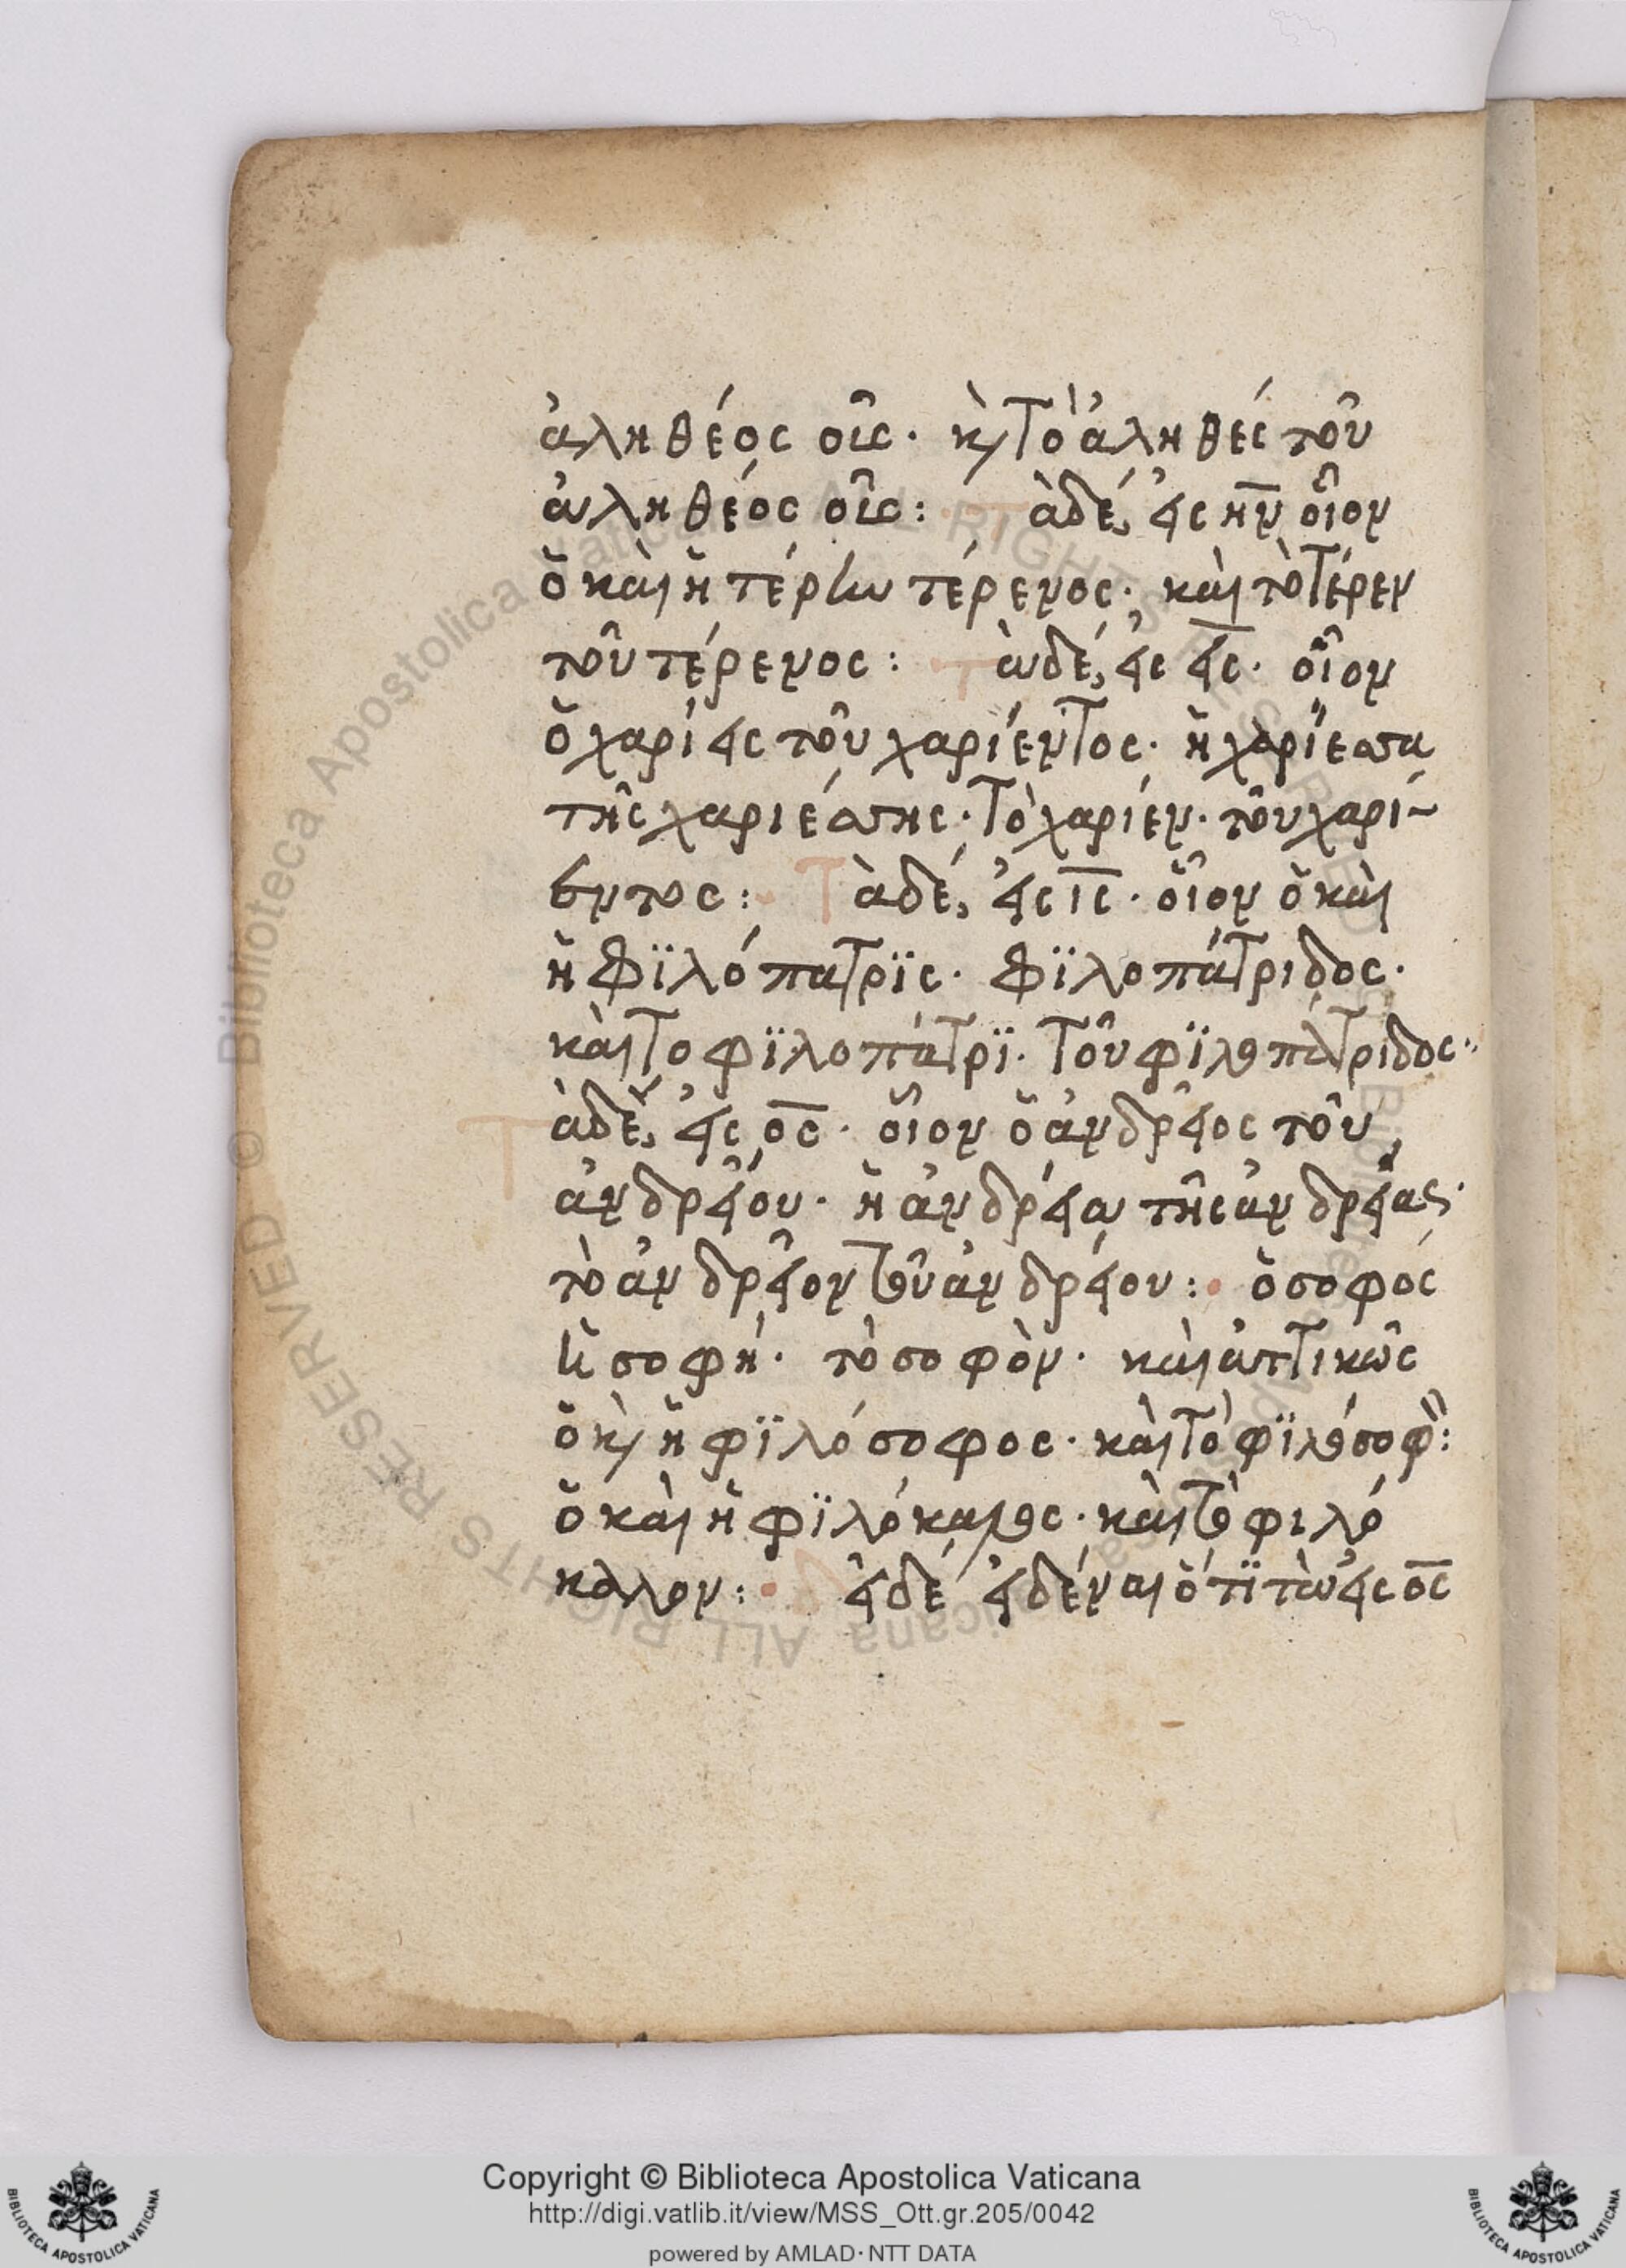 ἀληθέος οῦς· κ(αὶ) τὸ ἀληθὲς τοῦ
ἀληθέος οῦς: Τὰ δέ, εἰς ην οἷον
ὁ καὶ ἡ τέρην τέρενος· καὶ τὸ τέρεν
τοῦ τέρενος: Τὰ δέ, εἰς εις· οἷον
ὁ χαρίεις τοῦ χαρίεντος· ἡ χαρίεσσα
τῆς χαριέσσης· τὸ χαρίεν· τοῦ χαρί-
εντος: Τὰ δέ, εἰς ις· οἷον ὁ καὶ
ἡ φϊλόπατρϊς· φϊλοπάτριδος·
καὶ το φϊλοπάτρϊ· τοῦ φϊλοπάτριδος··
Τὰ δέ, εἰς ος· οἷον ὁ ἀνδρεῖος τοῦ
ἀνδρείου· ἡ ἀνδρεία τῆς ἀνδρείας·
τὸ ἀνδρεῖον τοῦ ἀνδρείου: ὁ σοφός
ἡ σοφή· τὸ σοφὸν· καὶ ἀττικῶς
ὁ κ(αὶ) ἡ φϊλόσοφος· καὶ τὸ φϊλόσοφ(ον):
ὁ καὶ ἡ φϊλόκαλος· καὶ τὸ φιλό
καλον: Δεῖ δέ εἰδέναι ὅτϊ τὰ εἰς ος
Copyright © Biblioteca Apostolica Vaticana
http://digi.vatlib.it/view/MSS_Ott.gr.205/0042
powered by AMLAD·NTT DATA
BIBLIOTECA APOSTOLICA VATICANA
BIBLIOTECA APOSTOLICA VATICANA